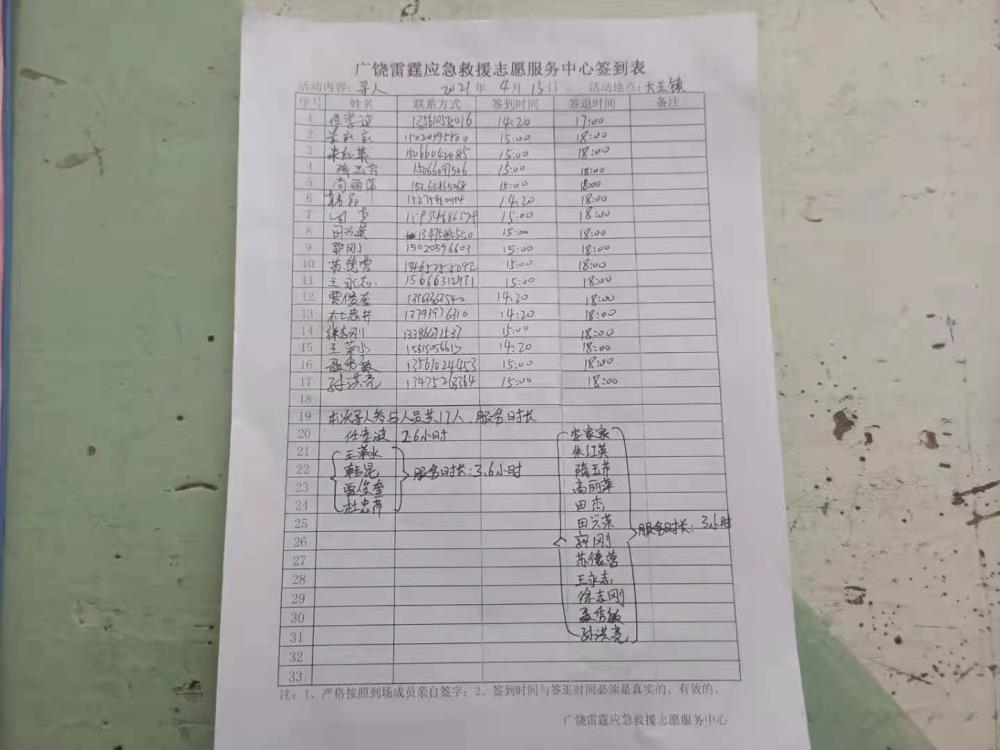 广饶雷霆应急救援志愿服务中心签到表
活动内容：寻人 2021年 4月 13日 活动地点：大王镇
序号 姓名 联系方式 签到时间 签退时间 备注
1 任孝波 14:20 17:00
2 李家家 15:00 18:00
3 朱红英 15:00 18:00
4 隋玉芹 15:00 18:00
5 高丽萍 15:00 18:00
6 韩昆 14:20 18:00
7 田杰 15:00 18:00
8 田兴荣 15:00 18:00
9 郭刚 15020596603 15:00 18:00
10 苏德营 15:00 18:00
11 王永志 15666312971 15:00 18:00
12 贾俊奎 14:20 18:00
13 杜忠芹 13793976310 14:20 18:00
14 徐志刚 15:00 18:00
15 王荣水 14:20 18:00
16 聂秀敏 13561024453 15:00 18:00
17 孙洪亮 15:00 18:00
18
19 本次寻人参与人员共17人，服务时长
20 任孝波 2.6小时 李家家
21 王荣水 朱红英
22 韩昆 服务时长：3.6小时 隋玉芹
23 贾俊奎 高丽萍
24 杜忠芹 田杰
25 田兴荣 服务时长：3小时
26 郭刚
27 苏德营
28 王永志
29 徐志刚
30 聂秀敏
31 孙洪亮
32
33
注：1、严格按照到场成员亲自签字；2、签到时间与签退时间必须是真实的、有效的。
广饶雷霆应急救援志愿服务中心